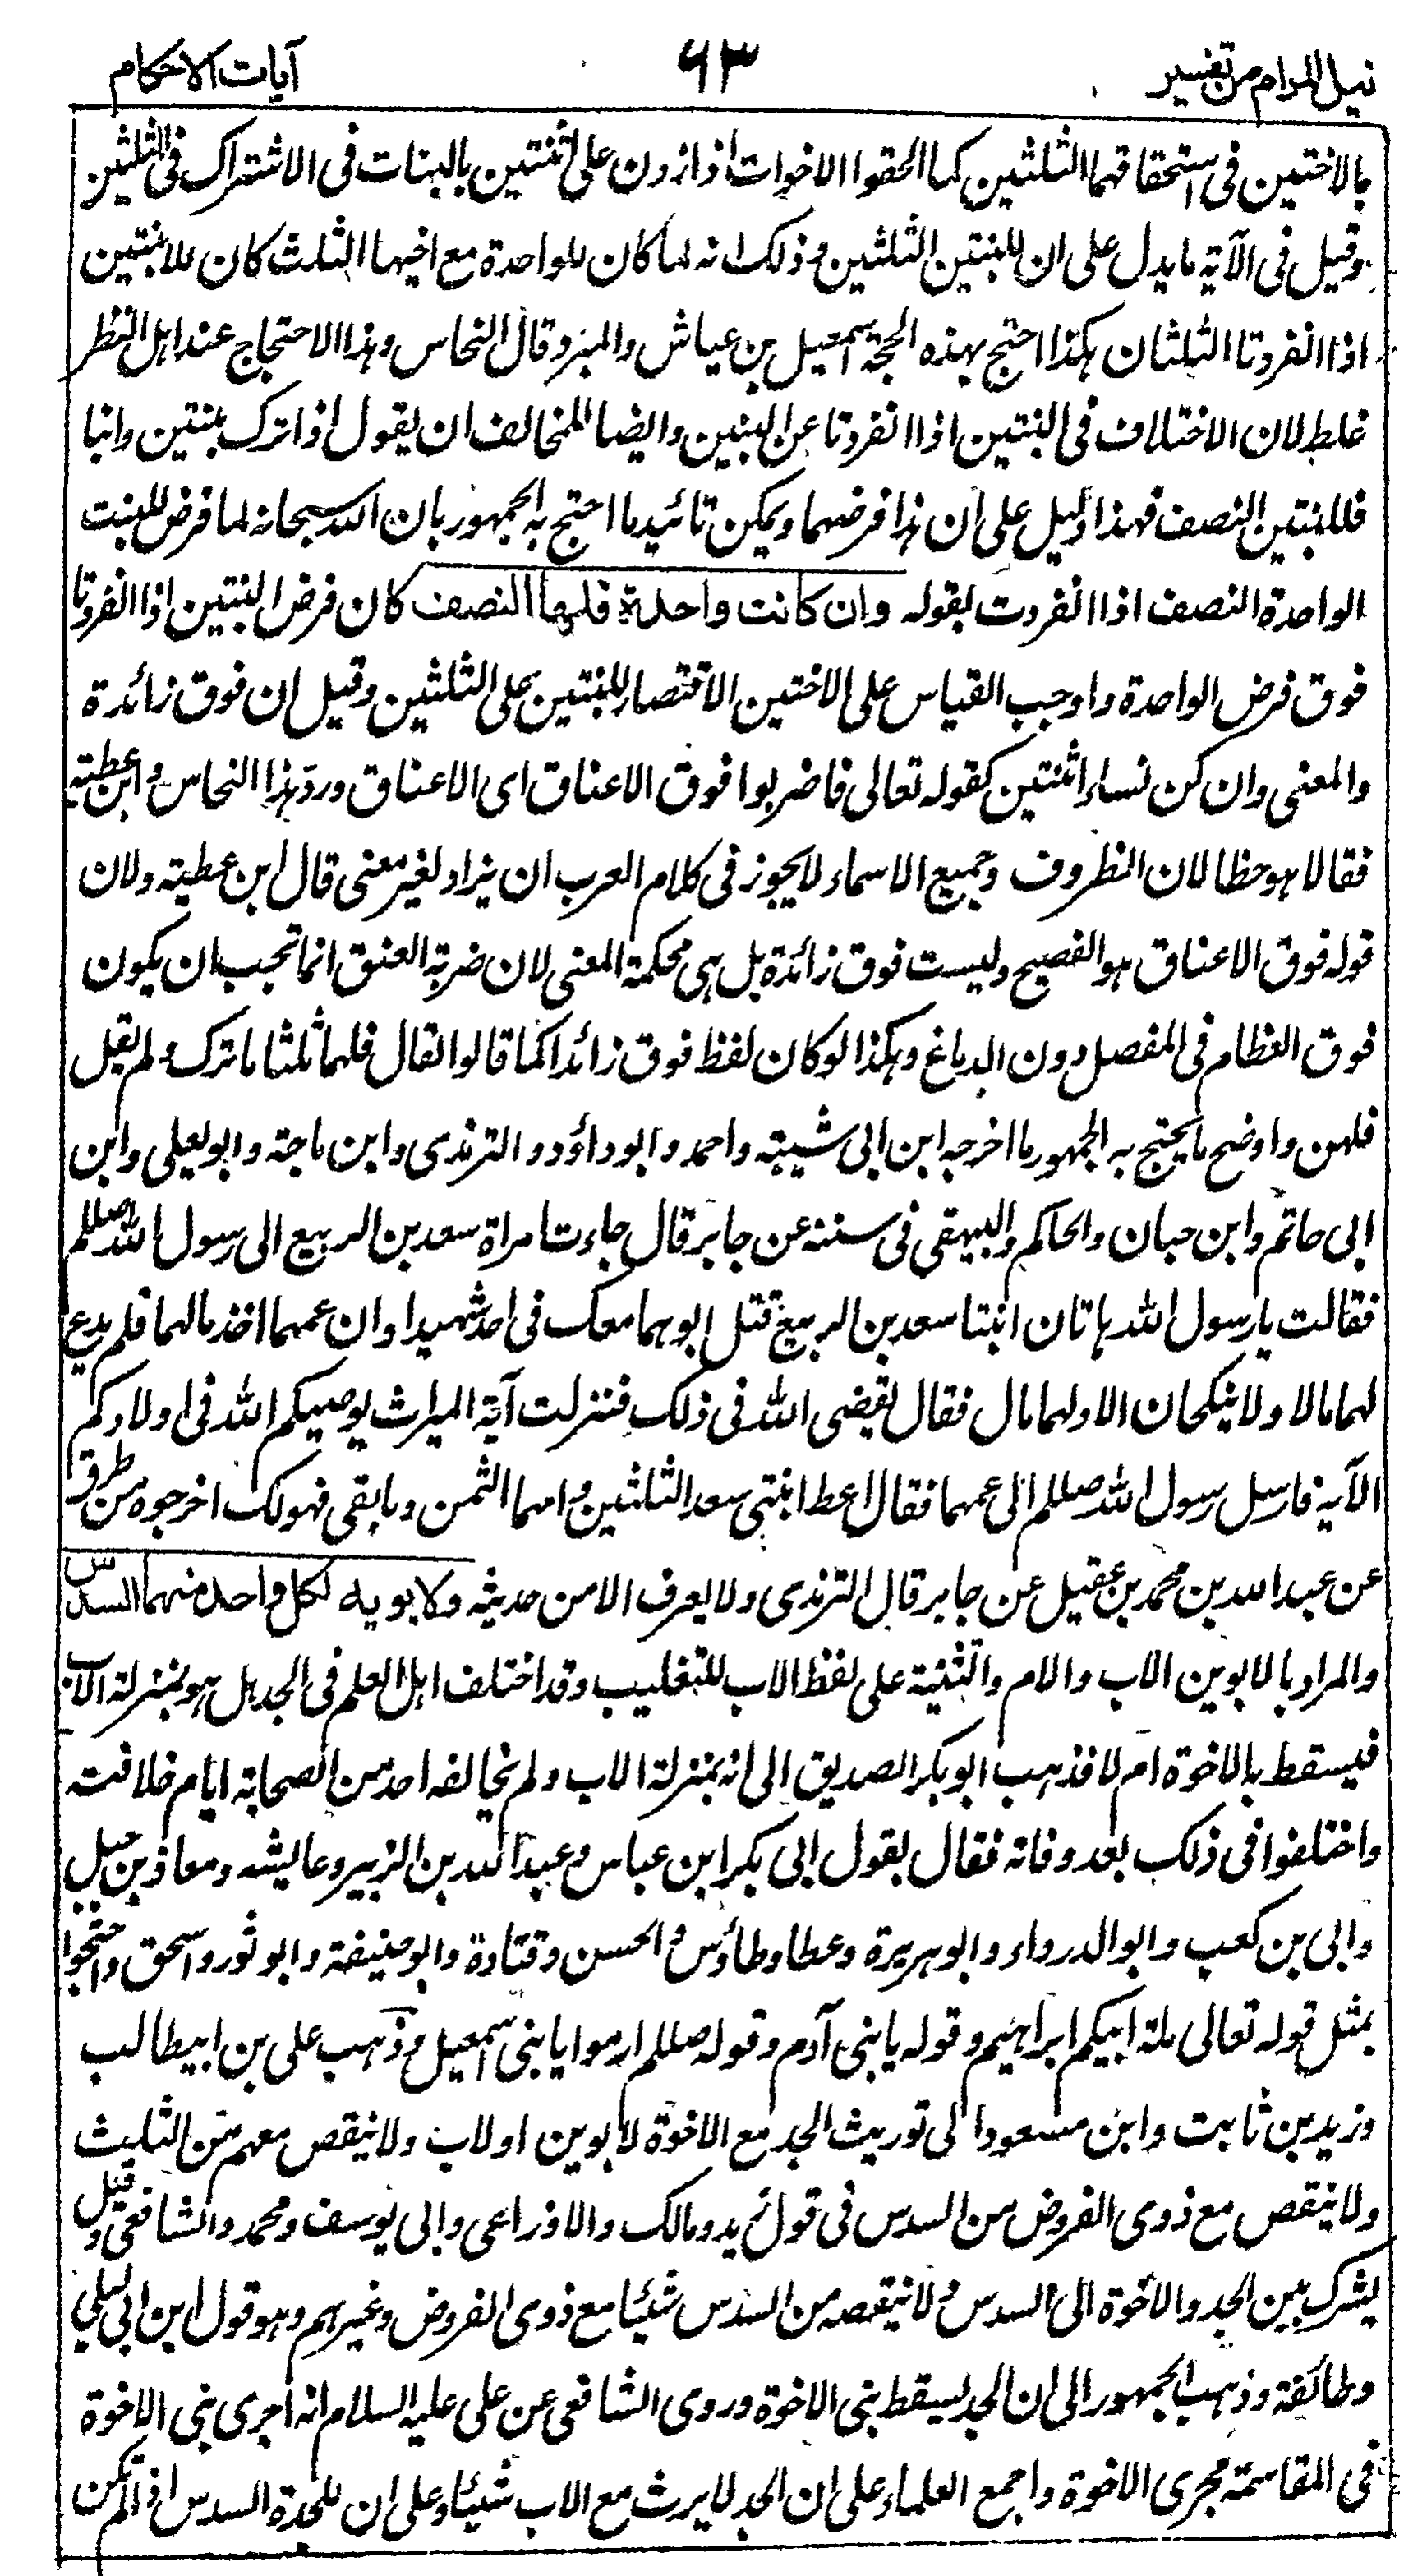 نيل المرام من تفسير ٦٣ آيات الاحكام
بالاختين فى استحقاقهما الثلثين كما الحقوا الاخوات اذا زدن على اثنتين بالبنات فى الاشتراك فى الثلثين
وقيل فى الآية ما يدل على ان للبنتين الثلثين وذلك انه لما كان للواحدة مع اخيها الثلث كان للابنتين
اذا انفردتا الثلثان هكذا احتج بهذه الحجة اسمعيل بن عياش والمبرد وقال النحاس وهذا الاحتجاج عند اهل النظر
غلط لان الاختلاف فى البنتين اذا انفردتا عن البنين وايضا للمخالف ان يقول اذا ترك بنتين وابنا
فللبنتين النصف فهذا دليل على ان هذا فرضهما ويمكن تائيد ما احتج به الجمهور بان الله سبحانه لما فرض للبنت
الواحدة النصف اذا انفردت بقوله وان كانت واحدة فلها النصف كان فرض البنتين اذا انفردتا
فوق فرض الواحدة واوجب القياس على الاختين الاقتصار للبنتين على الثلثين وقيل ان فوق زائدة
والمعنى وان كن نساء اثنتين كقوله تعالى فاضربوا فوق الاعناق اى الاعناق ورد هذا النحاس وابن عطية
فقالا هو خطا لان الظروف وجميع الاسماء لا يجوز فى كلام العرب ان يزاد لغير معنى قال ابن عطية ولان
قوله فوق الاعناق هو الفصيح وليست فوق زائدة بل هى محكمة المعنى لان ضربة العنق انما تجب ان يكون
فوق العظام فى المفصل دون الدماغ وهكذا لو كان لفظ فوق زائدا كما قالوا لقال فلهما ثلثا ما ترك ولم يقل
فلهن واوضح ما يحتج به الجمهور ما اخرجه ابن ابى شيبة واحمد وابو داؤد والترمذى وابن ماجة وابو يعلى وابن
ابى حاتم وابن حبان والحاكم والبيهقى فى سننه عن جابر قال جاءت امراة سعد بن الربيع الى رسول الله صللم
فقالت يا رسول الله هاتان ابنتا سعد بن الربيع قتل ابوهما معك فى احد شهيدا وان عمهما اخذ مالهما فلم يدع
لهما مالا ولا ينكحان الا ولهما مال فقال يقضى الله فى ذلك فنزلت آية الميراث يوصيكم الله فى اولادكم
الآية فارسل رسول الله صللم الى عمهما فقال اعط ابنتى سعد الثلثين وامهما الثمن وما بقى فهو لك اخرجوه من طرق
عن عبد الله بن محمد بن عقيل عن جابر قال الترمذى ولا يعرف الا من حديثه ولابويه لكل واحد منهما السدس
والمراد بالابوين الاب والام والتثنية على لفظ الاب للتغليب وقد اختلف اهل العلم فى الجد هل هو بمنزلة الاب
فيسقط بالاخوة ام لا فذهب ابو بكر الصديق الى انه بمنزلة الاب ولم يخالفه احد من الصحابة ايام خلافته
واختلفوا فى ذلك بعد وفاته فقال بقول ابى بكر ابن عباس وعبد الله بن الزبير وعايشه ومعاذ بن جبل
وابى بن كعب وابو الدرداء وابو هريرة وعطا وطاؤس والحسن وقتادة وابو حنيفة وابو ثور واسحق واحتجوا
بمثل قوله تعالى ملة ابيكم ابراهيم وقوله يا بنى آدم وقوله صللم ارموا يا بنى اسمعيل وذهب على بن ابيطالب
وزيد بن ثابت وابن مسعود الى توريث الجد مع الاخوة لابوين او لاب ولا ينقص معهم من الثلث
ولا ينقص مع ذوى الفروض من السدس فى قول زيد ومالك والاوزاعى وابى يوسف ومحمد والشافعى وقيل
يشرك بين الجد والاخوة الى السدس ولا ينقصه من السدس شيئا مع ذوى الفروض وغيرهم وهو قول ابن ابى ليلى
وطائفة وذهب الجمهور الى ان الجد يسقط بنى الاخوة وروى الشافعى عن على عليه السلام انه اجرى بنى الاخوة
فى المقاسمة مجرى الاخوة واجمع العلماء على ان الجد لا يرث مع الاب شيئا وعلى ان للجدة السدس اذا لم تكن